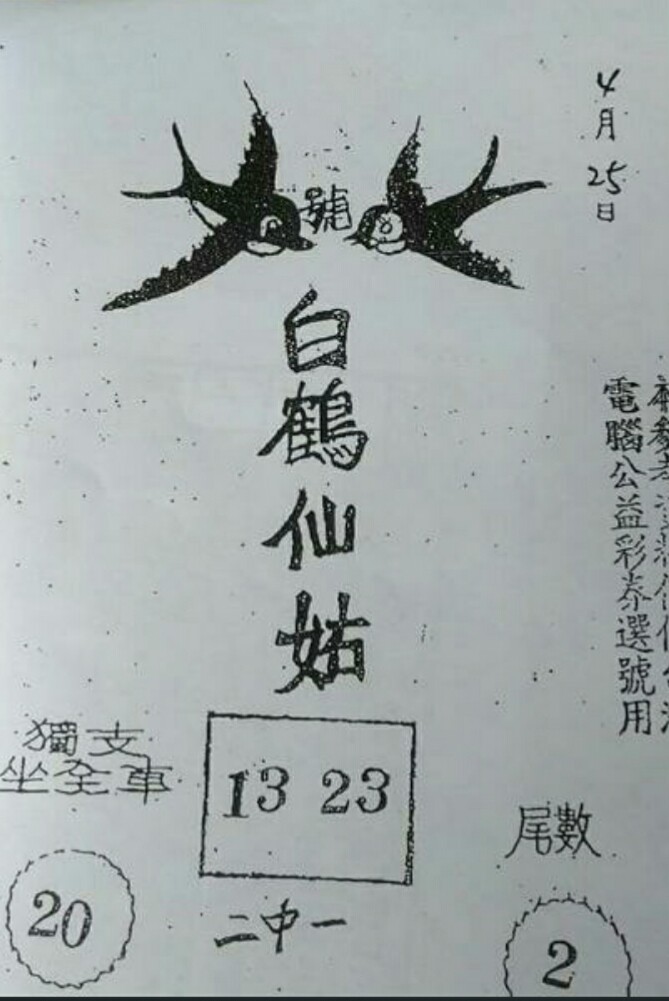 4月25日
號
白鶴仙姑
電腦公益彩券選號用
獨支
坐全車
20
13 23
二中一
尾數
2